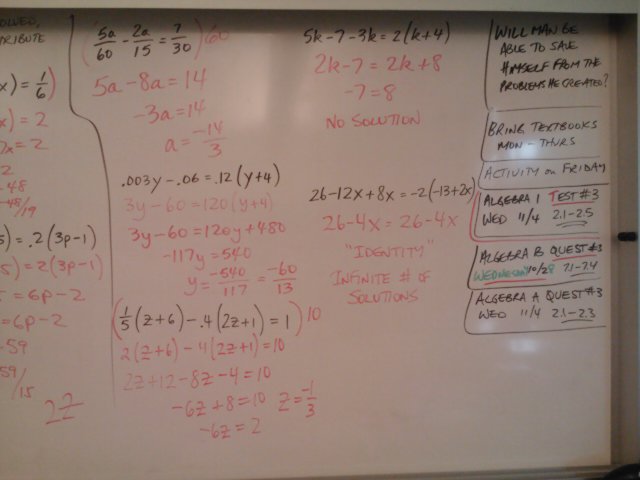 SOLVED,
TRIBUTE
x) = 1/6)
x) = 2
7x = 2
2
-48
-48/19
5) = .2(3p-1)
5) = 2(3p-1)
= 6p-2
= 6p-2
-59
59/15
2Z
(5a/60 - 2a/15 = 7/30)60
5a - 8a = 14
-3a = 14
a = -14/3
.003y - .06 = .12(y+4)
3y - 60 = 120(y+4)
3y - 60 = 120y + 480
-117y = 540
y = -540/117 = -60/13
(1/5(z+6) - .4(2z+1) = 1)10
2(z+6) - 4(2z+1) = 10
2z + 12 - 8z - 4 = 10
-6z + 8 = 10 z = -1/3
-6z = 2
5k - 7 - 3k = 2(k+4)
2k - 7 = 2k + 8
-7 = 8
NO SOLUTION
26 - 12x + 8x = -2(-13+2x)
26 - 4x = 26 - 4x
"IDENTITY"
INFINITE # OF
SOLUTIONS
WILL MAN BE
ABLE TO SAVE
HIMSELF FROM THE
PROBLEMS HE CREATED?
BRING TEXTBOOKS
MON - THURS
ACTIVITY on FRIDAY
ALGEBRA 1 TEST #3
WED 11/4 2.1-2.5
ALGEBRA B QUEST #3
WEDNESDAY 10/28 7.1-7.4
ALGEBRA A QUEST #3
WED 11/4 2.1-2.3